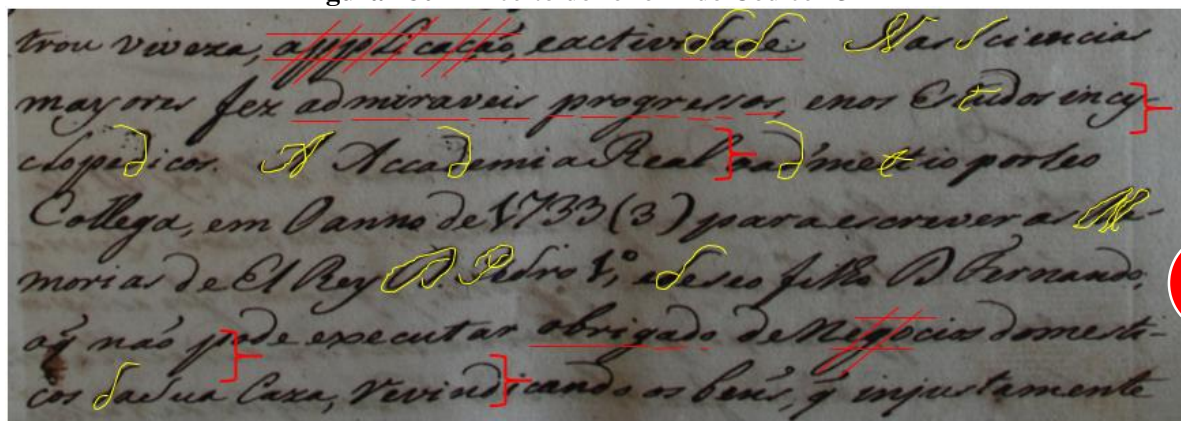 trou viveza, applicação, eactividade. Nas Sciencias
mayores fez admiraveis progressos, enos Estudos incy-
clopedicos. A Accademia Real oadmettio porseo
Collega, em o anno de 1733 (3) para escrever as Me-
morias de El Rey D. Pedro 1º, edeseo filho D. Fernando,
oq̃ naõ pode executar obrigado de Negocios domesti-
cos dasua Caza, Revindicando os beñs, q̃ injustamente